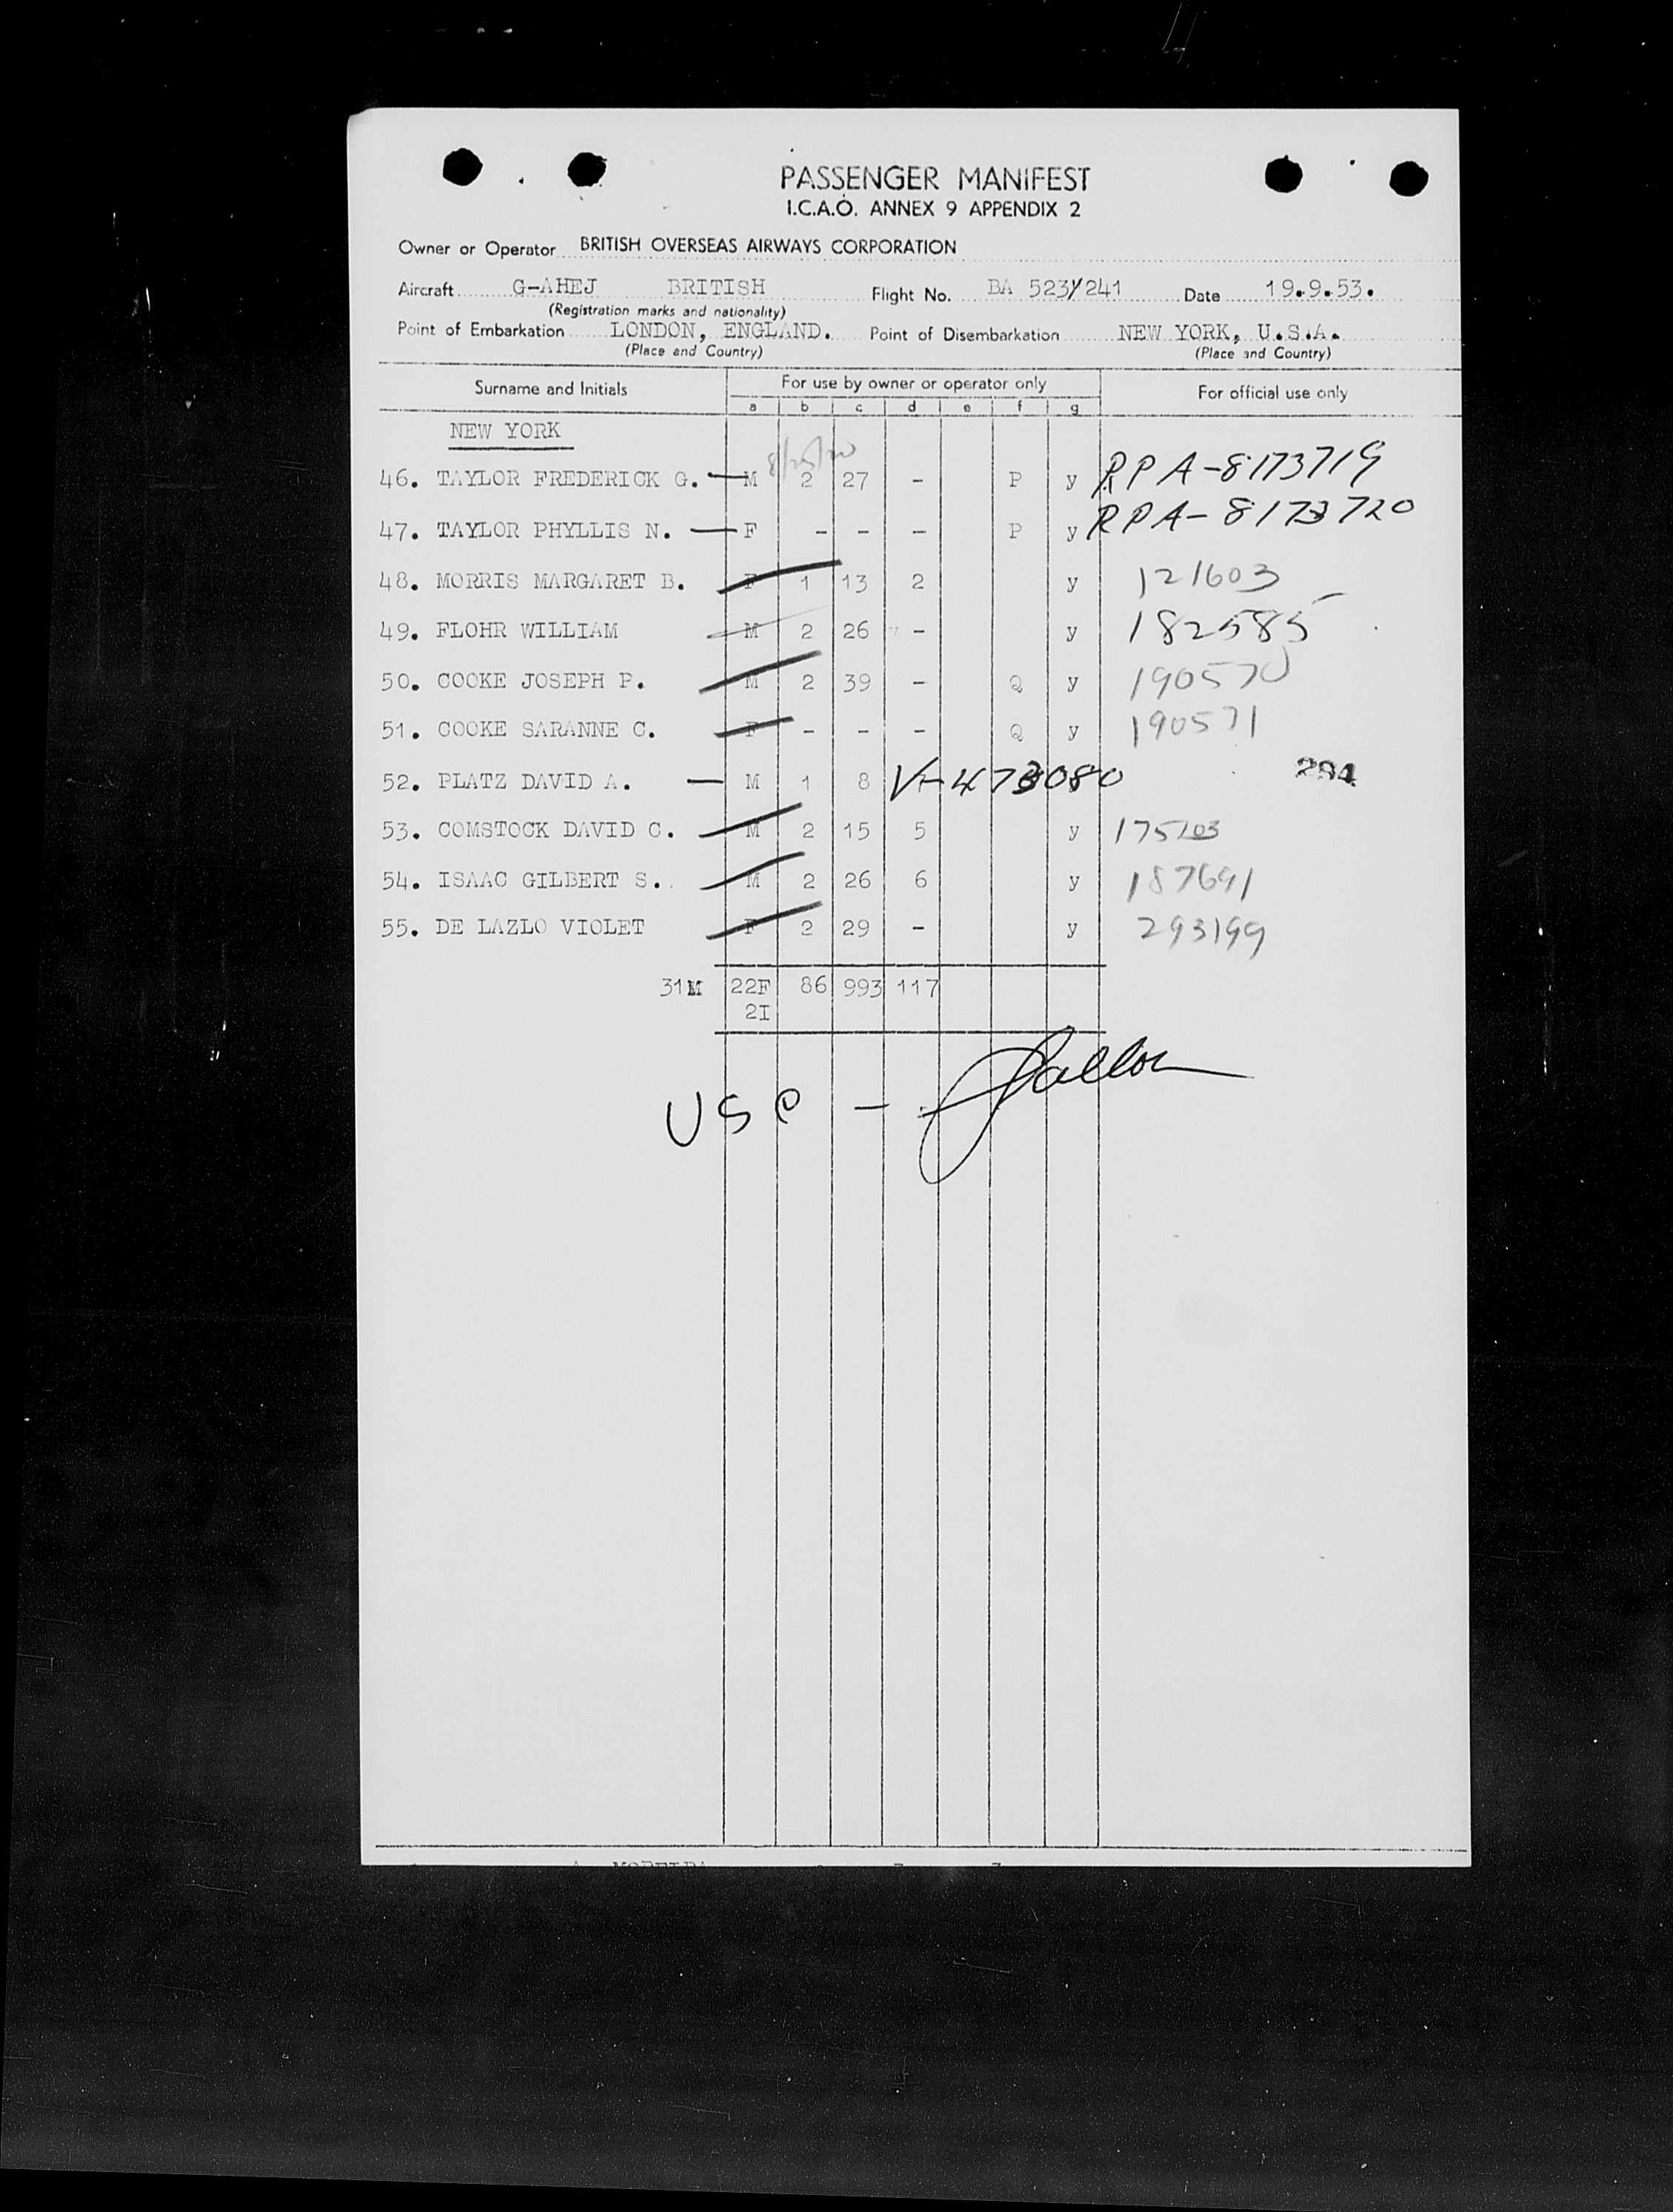 PASSENGER MANIFEST
I.C.A.O. ANNEX 9 APPENDIX 2
Owner or Operator BRITISH OVERSEAS AIRWAYS CORPORATION
Aircraft G-AHEJ BRITISH Flight No. BA 523Y/241 Date 19.9.53.
(Registration marks and nationality)
Point of Embarkation LONDON, ENGLAND. Point of Disembarkation NEW YORK, U.S.A.
(Place and Country) (Place and Country)
Surname and Initials For use by owner or operator only For official use only
a b c d e f g
NEW YORK
46. TAYLOR FREDERICK G. — M 2 27 - P y RPA-8173719
47. TAYLOR PHYLLIS N. — F - - - P y RPA-8173720
48. MORRIS MARGARET B. F 1 13 2 y 121603
49. FLOHR WILLIAM M 2 26 - y 182585
50. COOKE JOSEPH P. M 2 39 - Q y 190570
51. COOKE SARANNE C. F - - - Q y 190571
52. PLATZ DAVID A. — M 1 8 V-473080
294
53. COMSTOCK DAVID C. M 2 15 5 y 175103
54. ISAAC GILBERT S. M 2 26 6 y 187691
55. DE LAZLO VIOLET F 2 29 - y 293199
31M 22F 86 993 117
2I
USC -